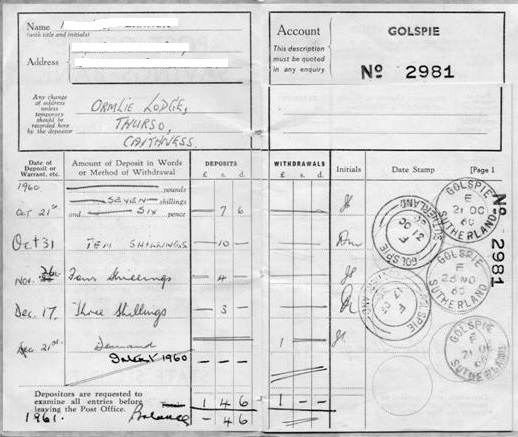 Name
(with title and initials)
Address
Any change
of address
unless
temporary
should be
recorded here
by the depositor
ORMLIE LODGE,
THURSO,
CAITHNESS.
Account GOLSPIE
This description
must be quoted
in any enquiry
No 2981
Date of Deposit or Warrant, etc. Amount of Deposit in Words or Method of Withdrawal DEPOSITS £ s. d. WITHDRAWALS £ s. d. Initials Date Stamp [Page 1
1960 pounds
SEVEN shillings
Oct 21st and SIX pence — 7 6
Oct 31 TEN SHILLINGS — 10 —
Nov. 26 Four Shillings — 4 —
Dec. 17. Three Shillings — 3 —
Dec 21st Demand 1 — —
Interest 1960 — — —
Depositors are requested to
examine all entries before
leaving the Post Office.
1 4 6 1 — —
1961. Balance — 4 6
GOLSPIE
F
21 OC
60
SUTHERLAND
GOLSPIE
F
SUTHERLAND
GOLSPIE
F
NO
60
SUTHERLAND
GOLSPIE
GOLSPIE
F
21
SUTHERLAND
No 2981